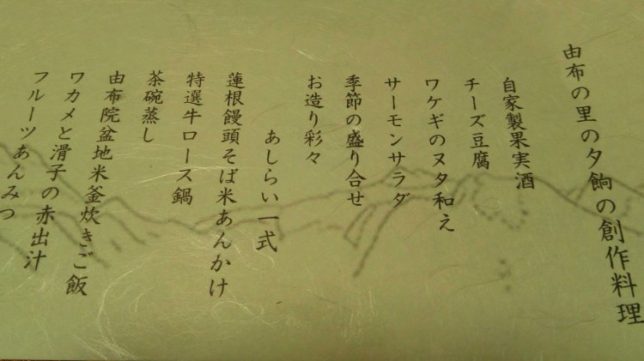 由布の里の夕餉の創作料理
自家製果実酒
チーズ豆腐
ワケギのヌタ和え
サーモンサラダ
季節の盛り合せ
お造り彩々
あしらい一式
蓮根饅頭そば米あんかけ
特選牛ロース鍋
茶碗蒸し
由布院盆地米釜炊きご飯
ワカメと滑子の赤出汁
フルーツあんみつ